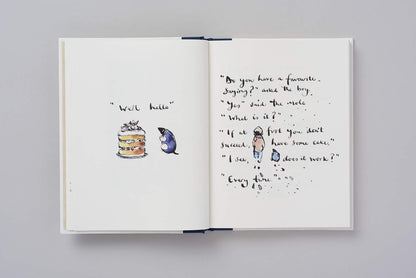 "Well hello"
"Do you have a favourite
saying?" asked the boy
"Yes" said the mole
"What is it?"
"If at first you don't
succeed, have some cake."
"I see, does it work?"
"Every time"